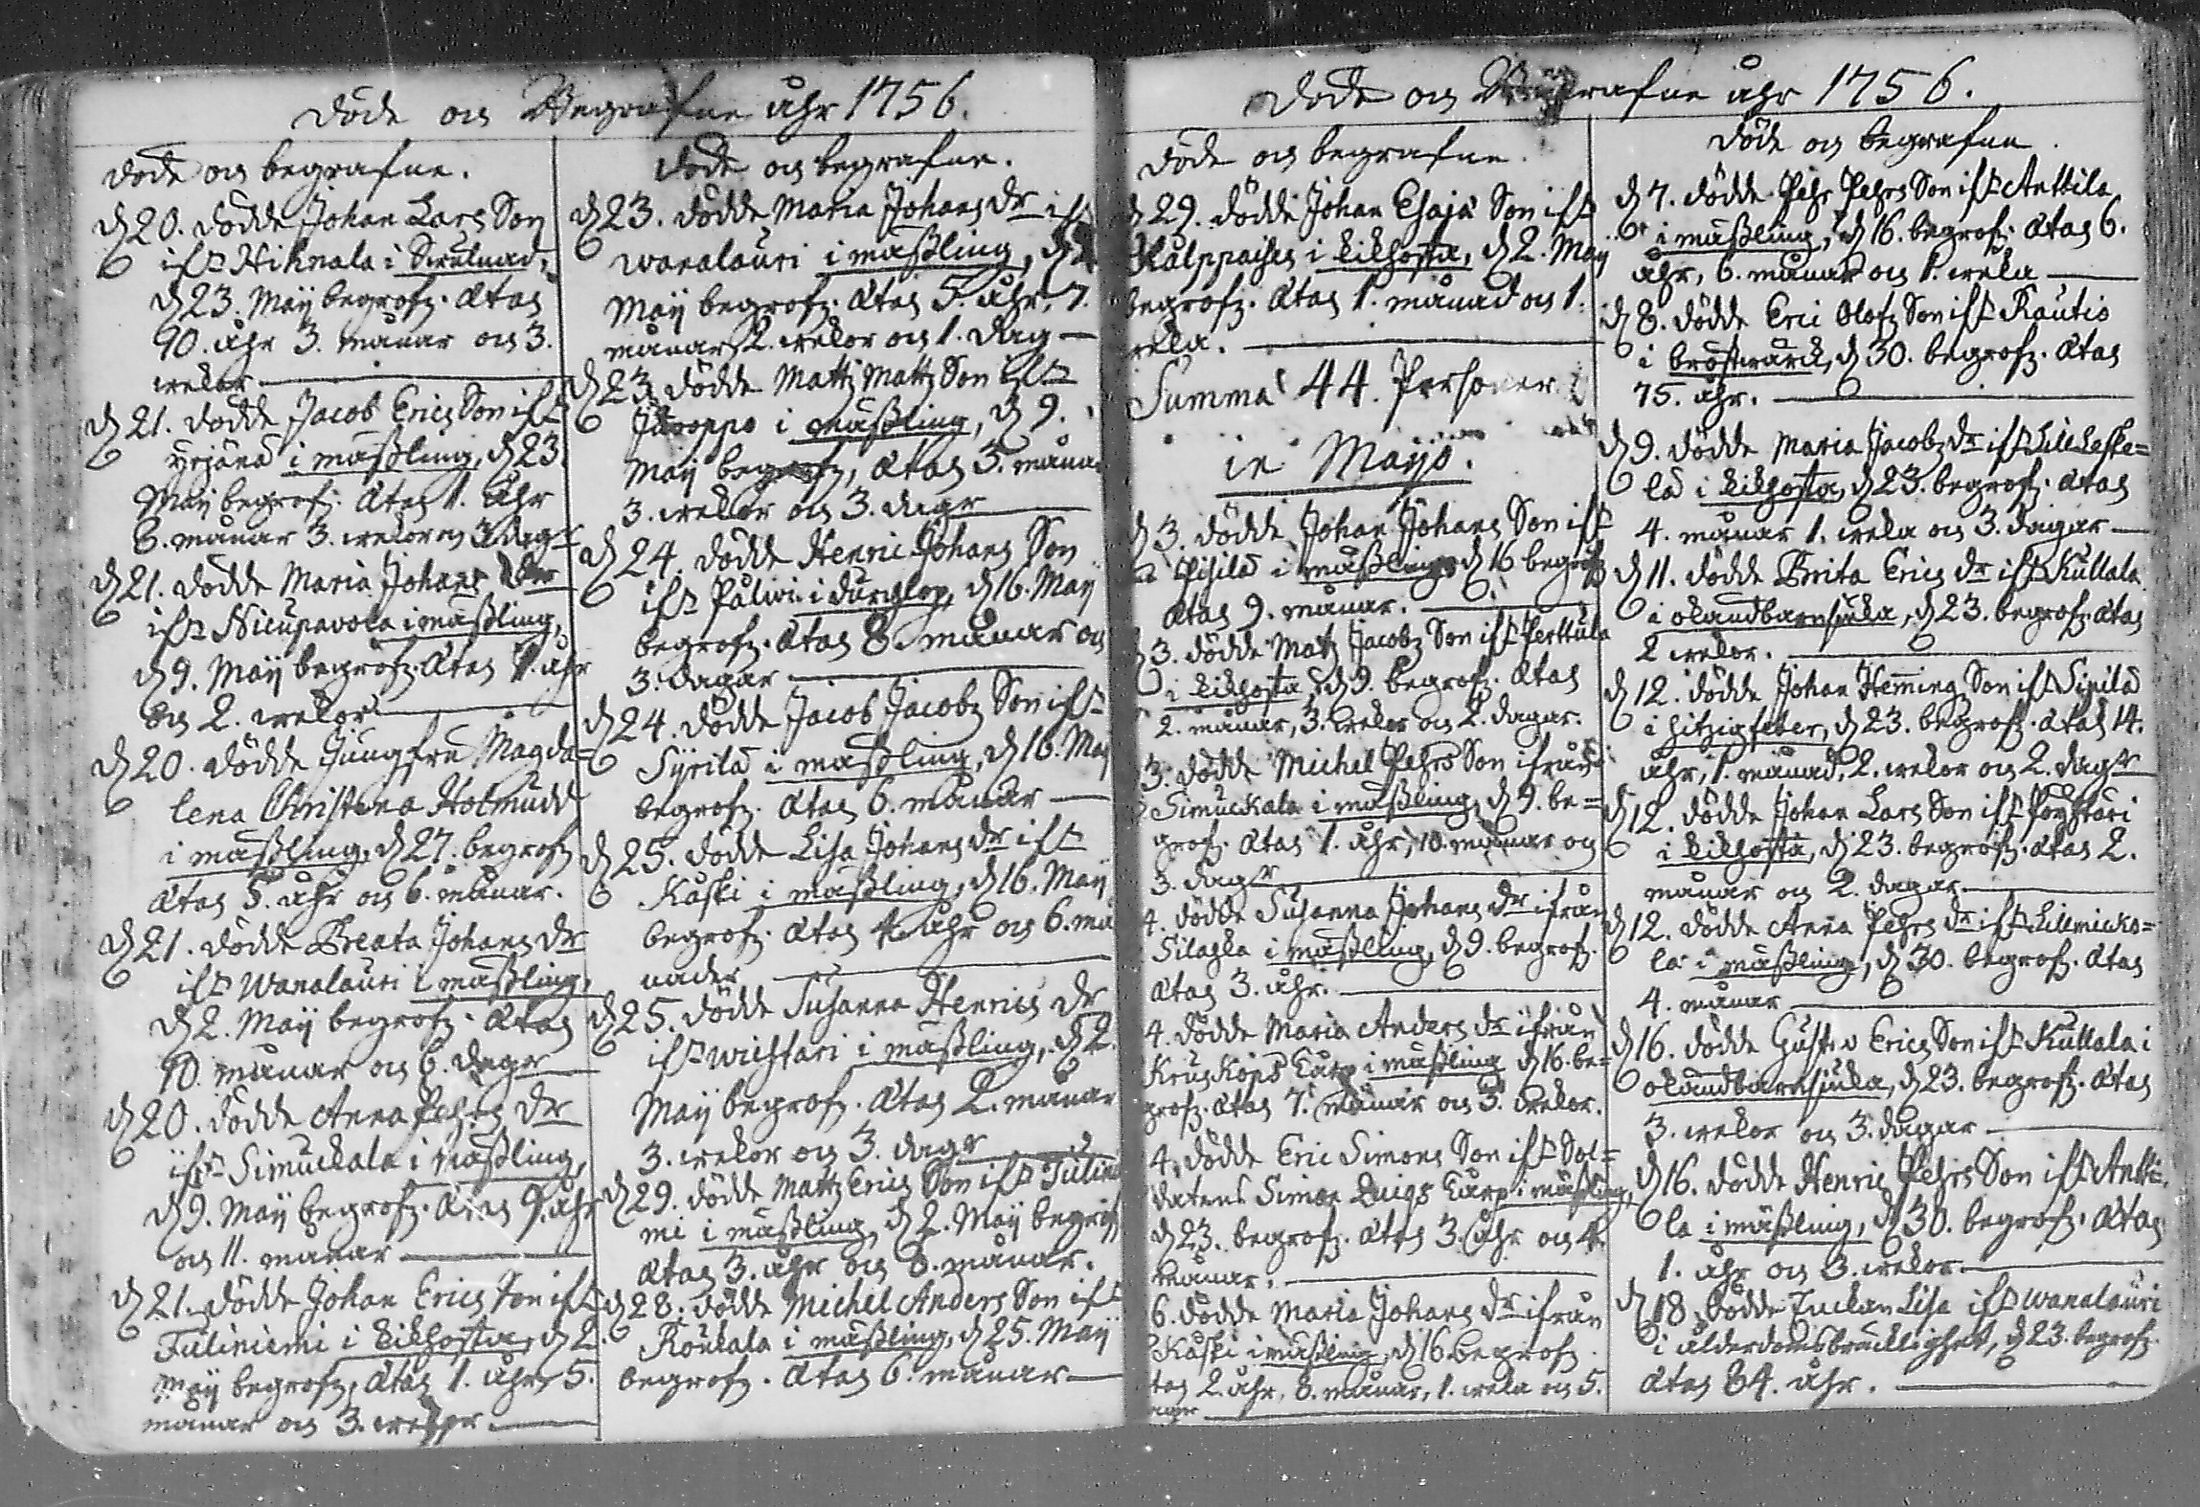 Döde och Begrafne åhr 1756.
Döde och begrafne.
D 20. dödde Johan Lars Son
ifr Hihnala i
D 23. Maij begrofz. Ætas
90. åhr 3. månar och 3.
wekor
D 21. dödde Jacob Erics Son ifr
Yrjänä i mäßling, D 23.
Maij begrofz. Ætas 1. åhr
8. månar 3. wekor och 3 dagr
D 21. dödde Maria Johans dr
ifr Nicupavola i mäßling,
D 9. Maij begrofz. Ætas 1. åhr
och 2. wekor
D 20. dödde Jungfru Magda=
lena Christena Holmudd
i mäßling, D 27. begrofz
Ætas 5. åhr och 6. månar.
D 21. dödde Beata Johans dr
ifr Wanalauri i mäßling,
D 2. Maij begrofz. Ætas
10. månar och 6. dagr
D 20. dödde Anna Pehrs dr
ifr Simuckala i mäßling,
D 9. Maij begrofz. Ætas 9. åhr
och 11. månar
D 21. dödde Johan Erics Son ifr
Tuliniemi i kikhosta, D 2
Maij begrofz, Ætas 1. åhr, 5.
månar och 3. wekor
Döde och begrafne.
D 23. dödde Maria Johans dr ifr
Wanalauri i mäßling, D 2
Maij begrofz. Ætas 5. åhr, 7.
månar, 2. wekor och 1. dag
D 23. dödde Mattz Mattz Son ifr
Juroppo i mäßling, D 9.
Maij begrofz, Ætas 5. måna
3. wekor och 3. dagr
D 24. dödde Henric Johans Son
ifr Palwi i durchlop, D 16. Maij
begrofz. Ætas 8. månar och
3. dagar
D 24. dödde Jacob Jacobz Son ifr
Syrilä i mäßling, D 16. Maij
begrofz. Ætas 6. månar
D 25. dödde Lisa Johans dr ifr
Kaski i mäßling, D 16. Maij
begrofz. Ætas 4. åhr och 6. må
nader
D 25. dödde Susanna Henrics dr
ifr Wichtari i mäßling, D 2.
Maij begrofz. Ætas 2. månar
3. wekor och 3. dagr
D 29. dödde Mattz Erics Son ifr Tulinie
mi i mäßling D 2. Maij begrofz
Ætas 3. åhr och 8. månar.
D 28. dödde Michel Anders Son ifr
Roukala i mäßling, D 25. Maij
begrofz. Ætas 6. månar
Döde och Begrafne åhr 1756.
Döde och begrafne.
D 29. dödde Johan Esaiæ Son ifr
Kulppaisen i kikhosta, D 2. Maij
begrofz. Ætas 1. månad och 1.
weka.
Summa 44. Personer.
in Majo.
D 3. dödde Johan Johans Son ifr
Pihila i mäßling, D 16 begrofz
Ætas 9. månar.
3. dödde Matz Jacobz Son ifr Perttula
i kikhosta, D 9. begrofz. Ætas
2. månar, 3. wekor och 2. dagar.
3. dödde Michel Pehrs Son ifrån
Simuckala i mäßling, D 9. be=
grofz. Ætas 1. åhr, 10. månar och
3. dagr
4. dödde Susanna Johans dr ifrån
Silagka i mäßling, D 9. begrofz.
Ætas 3. åhr.
4. dödde Maria Anders dr ifrån
Krus Köps Torp i mäßling D 16. be=
grofz. Ætas 7. månar och 3. wekor.
4. dödde Eric Simons Son ifr Sol=
datens Simon Torp i mäßling,
D 23. begrofz. Ætas 3. åhr och 4.
månar.
6. dödde Maria Johans dr ifrån
Kaski i mäßling, D 16. begrofz.
tas 2. åhr, 8. månar, 1. weka och 5.
agar
Döde och begrafne.
D 7. dödde Pehr Pehrs Son ifr Anttila
i mäßling, D 16. begrofz. Ætas 6.
åhr, 6. månar och 1. weka
D 8. dödde Eric Olofz Son ifr Rautio
i bröstwärck, D 30. begrofz. Ætas
75. åhr.
D 9. dödde Maria Jacobz dr ifr Lill Leske=
lä i kikhosta, D 23. begrofz. Ætas
4. månar 1. weka och 3. dagar
D 11. dödde Brita Erics dr ifr Kullala
i okändbarnsiuka, D 23. begrofz. Ætas
2 wekor.
D 12. dödde Johan Heming Son ifr Sipilä
i hitzigfeber, D 23. begrofz. Ætas 14.
åhr, 1. månad, 2. wekor och 2. dagr
D 12. dödde Johan Lars Son ifr Pöystäri
i kikhosta, D 23. begrofz. Ætas 2.
månar och 2. dagar.
D 12. dödde Anna Pehrs dr ifr Lillnicko=
la i mäßling, D 30. begrofz. Ætas
4. månar
D 16. dödde Gustav Erics Son ifr Kullala i
okändbarnsiuka, D 23. begrofz. Ætas
3. wekor och 3. dagar
D 16. dödde Henric Pehrs Son ifr Antti=
la i mäßling, D 30. begrofz. Ætas
1. åhr och 3. wekor.
D 18. dödde Enckan Lisa ifr Wanalauri
i ålderdomsbräcklighet, D 23. begrofz.
Ætas 84. åhr.